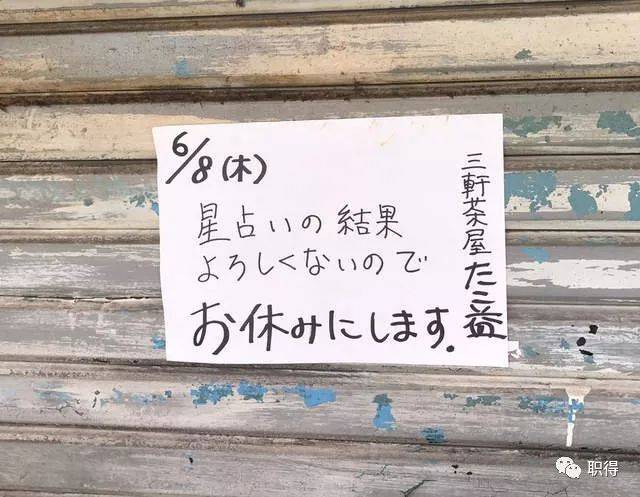 6/8(木)
星占いの結果
よろしくないので
お休みにします.
三軒茶屋 たこ益
职得